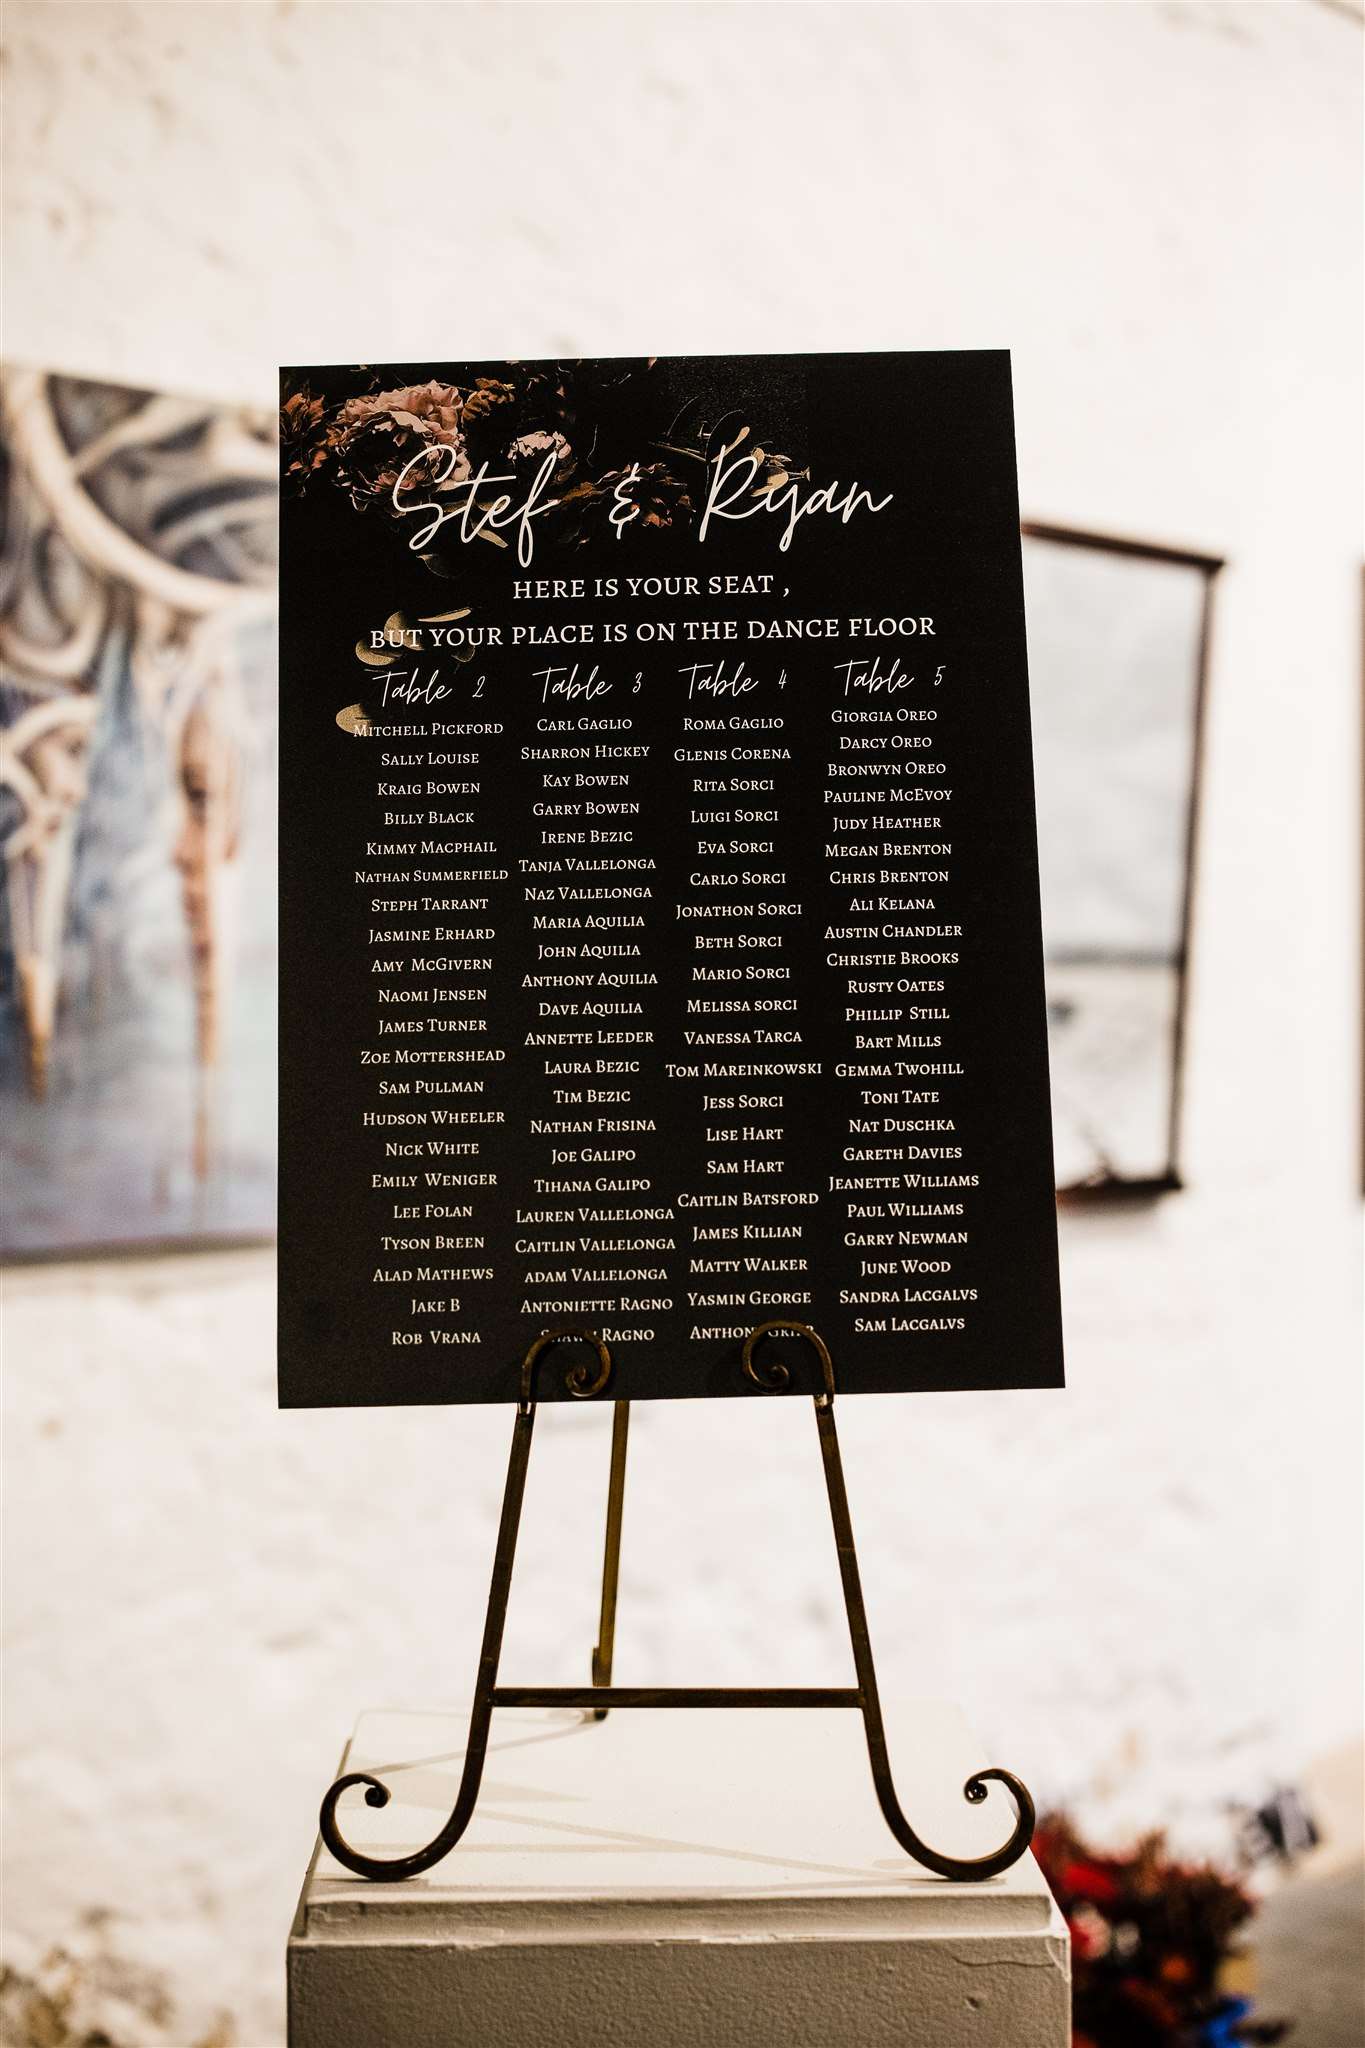 Stef & Ryan
HERE IS YOUR SEAT ,
BUT YOUR PLACE IS ON THE DANCE FLOOR
Table 2
MITCHELL PICKFORD
SALLY LOUISE
KRAIG BOWEN
BILLY BLACK
KIMMY MACPHAIL
NATHAN SUMMERFIELD
STEPH TARRANT
JASMINE ERHARD
AMY McGIVERN
NAOMI JENSEN
JAMES TURNER
ZOE MOTTERSHEAD
SAM PULLMAN
HUDSON WHEELER
NICK WHITE
EMILY WENIGER
LEE FOLAN
TYSON BREEN
ALAD MATHEWS
JAKE B
ROB VRANA
Table 3
CARL GAGLIO
SHARRON HICKEY
KAY BOWEN
GARRY BOWEN
IRENE BEZIC
TANJA VALLELONGA
NAZ VALLELONGA
MARIA AQUILIA
JOHN AQUILIA
ANTHONY AQUILIA
DAVE AQUILIA
ANNETTE LEEDER
LAURA BEZIC
TIM BEZIC
NATHAN FRISINA
JOE GALIPO
TIHANA GALIPO
LAUREN VALLELONGA
CAITLIN VALLELONGA
ADAM VALLELONGA
ANTONIETTE RAGNO
RAGNO
Table 4
ROMA GAGLIO
GLENIS CORENA
RITA SORCI
LUIGI SORCI
EVA SORCI
CARLO SORCI
JONATHON SORCI
BETH SORCI
MARIO SORCI
MELISSA SORCI
VANESSA TARCA
TOM MAREINKOWSKI
JESS SORCI
LISE HART
SAM HART
CAITLIN BATSFORD
JAMES KILLIAN
MATTY WALKER
YASMIN GEORGE
ANTHONY
Table 5
GIORGIA OREO
DARCY OREO
BRONWYN OREO
PAULINE McEVOY
JUDY HEATHER
MEGAN BRENTON
CHRIS BRENTON
ALI KELANA
AUSTIN CHANDLER
CHRISTIE BROOKS
RUSTY OATES
PHILLIP STILL
BART MILLS
GEMMA TWOHILL
TONI TATE
NAT DUSCHKA
GARETH DAVIES
JEANETTE WILLIAMS
PAUL WILLIAMS
GARRY NEWMAN
JUNE WOOD
SANDRA LACGALVS
SAM LACGALVS